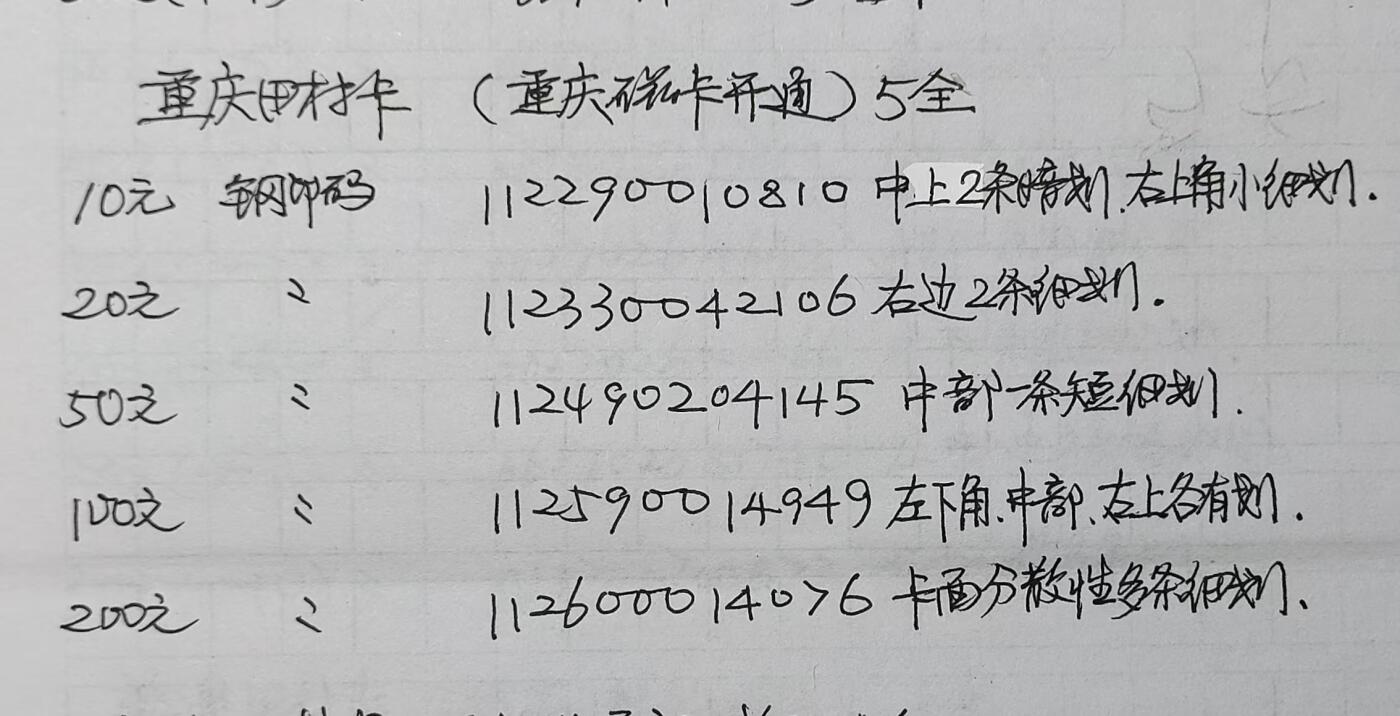 重庆田村卡 （重庆磁卡开通）5全
10元 钢印码 112290010810 中上2条暗划.右上角小细划.
20元 〃 112330042106 右边2条细划.
50元 〃 112490204145 中部一条短细划.
100元 〃 112590014949 左下角、中部、右上各有划.
200元 〃 112600014076 卡面分散性多条细划、